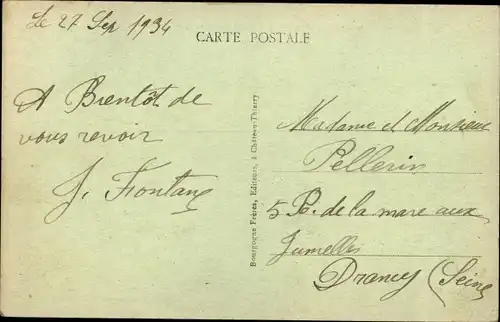 Le 27 Sep 1934
CARTE POSTALE
A Bientôt de
vous revoir
J. Fontane
Bourgogne Frères, Editeurs, à Château-Thierry
Madame et Monsieur
Pellerin
5 R. de la mare aux
Jumelles
Drancy (Seine)